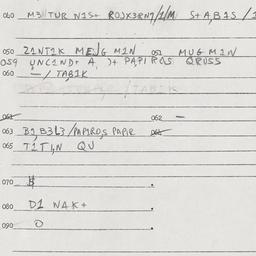 040 M3 TUR N1S+ ROJX3RN7/1/M S+A,B1S /1
050 Z1NT1K MEJG M1N 051 MUG M1N
059 UNC1ND+ A )+ PAPIROS QRUSS
060 — / TAB1K
061 062 —
063 B1,B3L3/PAPIROS PAPIR 064
065 T1T1,N QU
070 $ .
080 D1 NAK+ .
090 O .